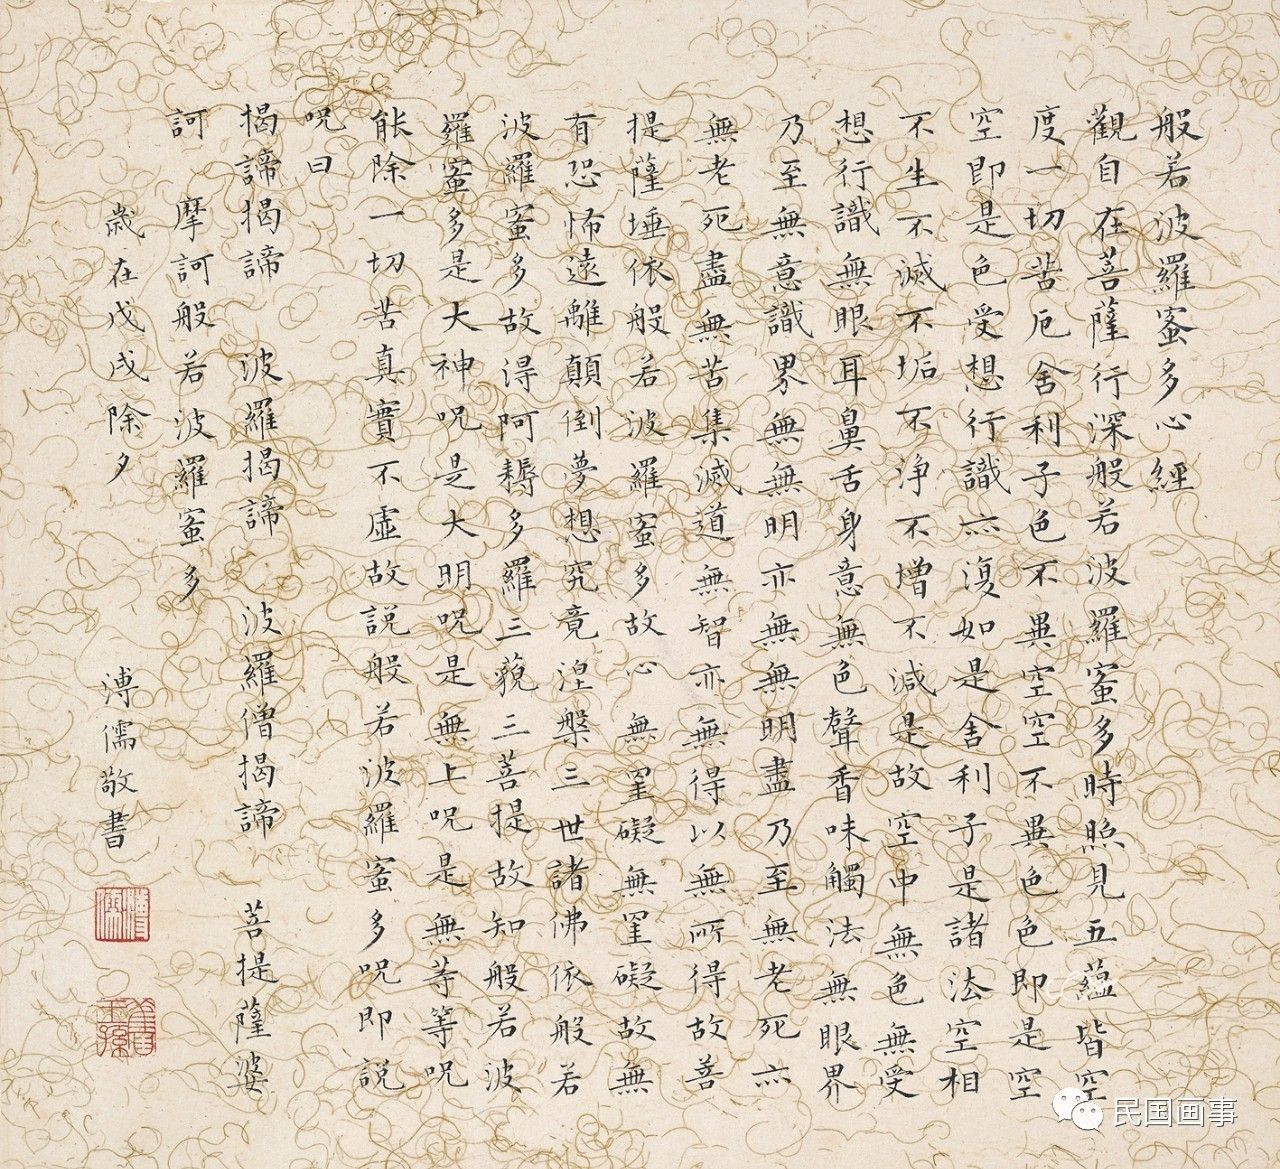 般若波羅蜜多心經
觀自在菩薩行深般若波羅蜜多時照見五蘊皆空
度一切苦厄舍利子色不異空空不異色色即是空
空即是色受想行識亦復如是舍利子是諸法空相
不生不滅不垢不淨不增不減是故空中無色無受
想行識無眼耳鼻舌身意無色聲香味觸法無眼界
乃至無意識界無無明亦無無明盡乃至無老死亦
無老死盡無苦集滅道無智亦無得以無所得故菩
提薩埵依般若波羅蜜多故心無罣礙無罣礙故無
有恐怖遠離顛倒夢想究竟涅槃三世諸佛依般若
波羅蜜多故得阿耨多羅三藐三菩提故知般若波
羅蜜多是大神呪是大明呪是無上呪是無等等呪
能除一切苦真實不虛故說般若波羅蜜多呪即說
呪曰
揭諦揭諦 波羅揭諦 波羅僧揭諦 菩提薩婆
訶 摩訶般若波羅蜜多
歲在戊戌除夕 溥儒敬書
舊王孫
民国画事